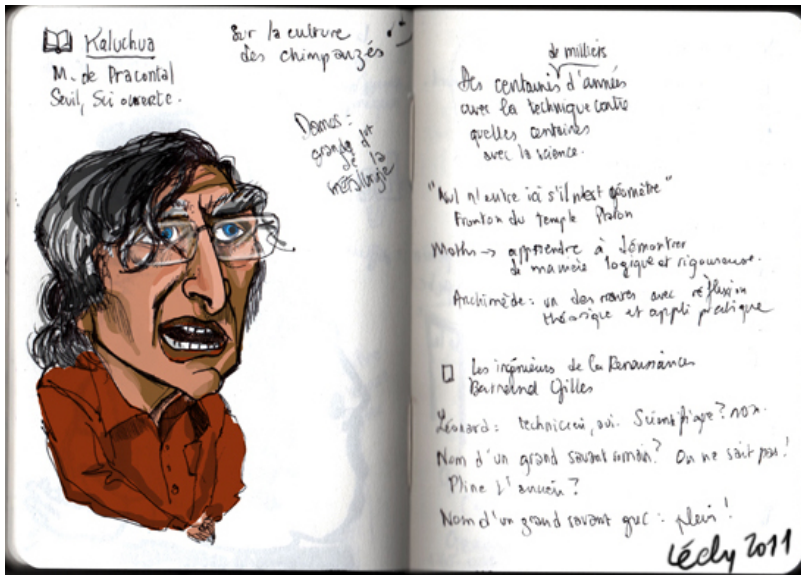 Kaluchua
M. de Pracontal
Seuil, Sci ouverte.
Sur la culture
des chimpanzés
Damas :
grand
de la
métallurgie
de milliers
Des centaines d'années
avec la technique contre
quelles centaines
avec la science.
"Nul n'entre ici s'il n'est géomètre"
Fronton du temple Platon
Maths → apprendre à démontrer
de manière logique et rigoureuse.
Archimède : un des rares avec réflexion
théorique et appli pratique
Les ingénieurs de la Renaissance
Bertrand Gilles
Léonard : technicien, oui. Scientifique ? non.
Nom d'un grand savant romain ? On ne sait pas !
Pline l'ancien ?
Nom d'un grand savant grec : plein !
Lécly 2011